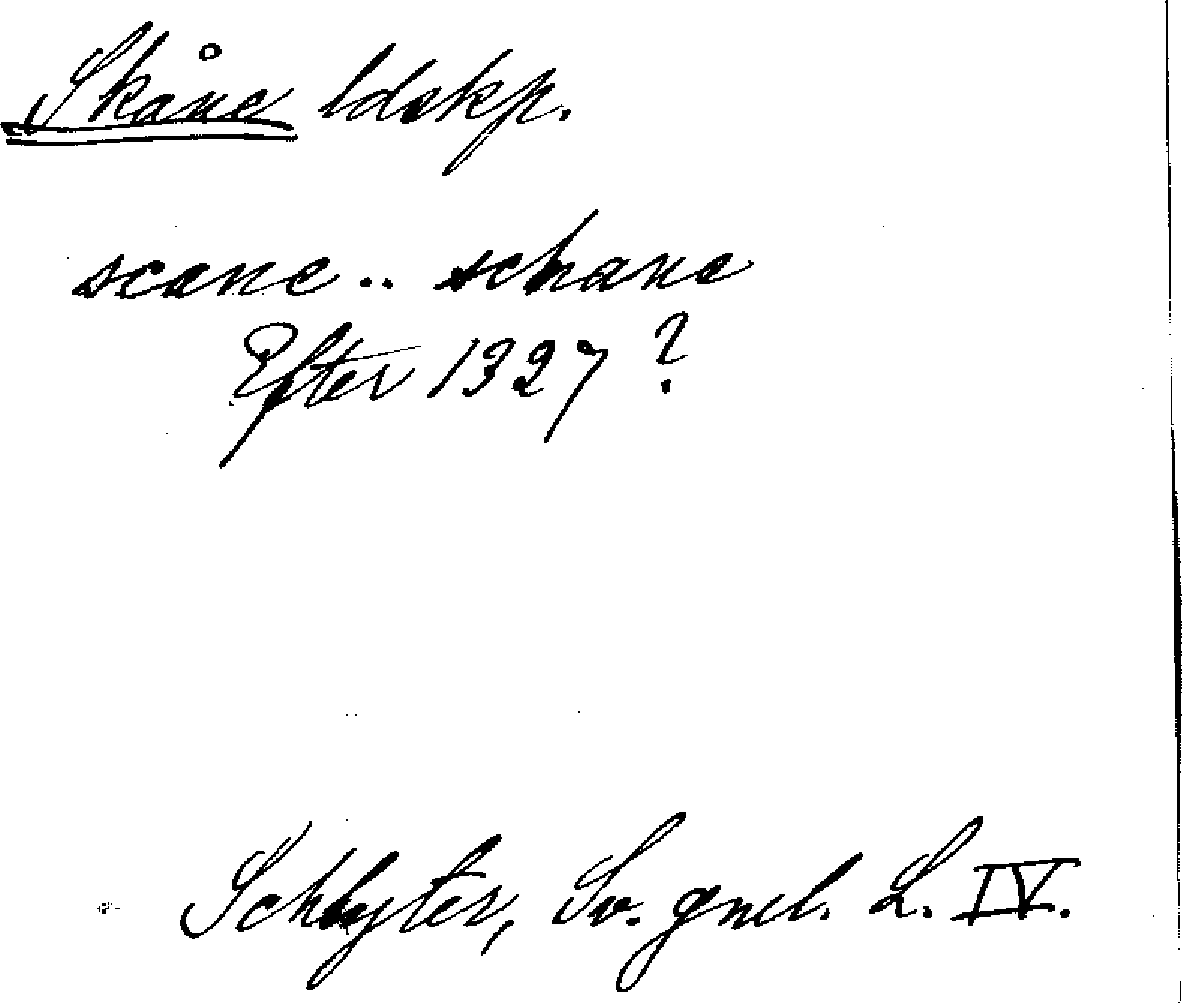 Skåne ldskp.
scane.. schane
Efter 1327?
Schlyter, Sv. gml. L. IV.